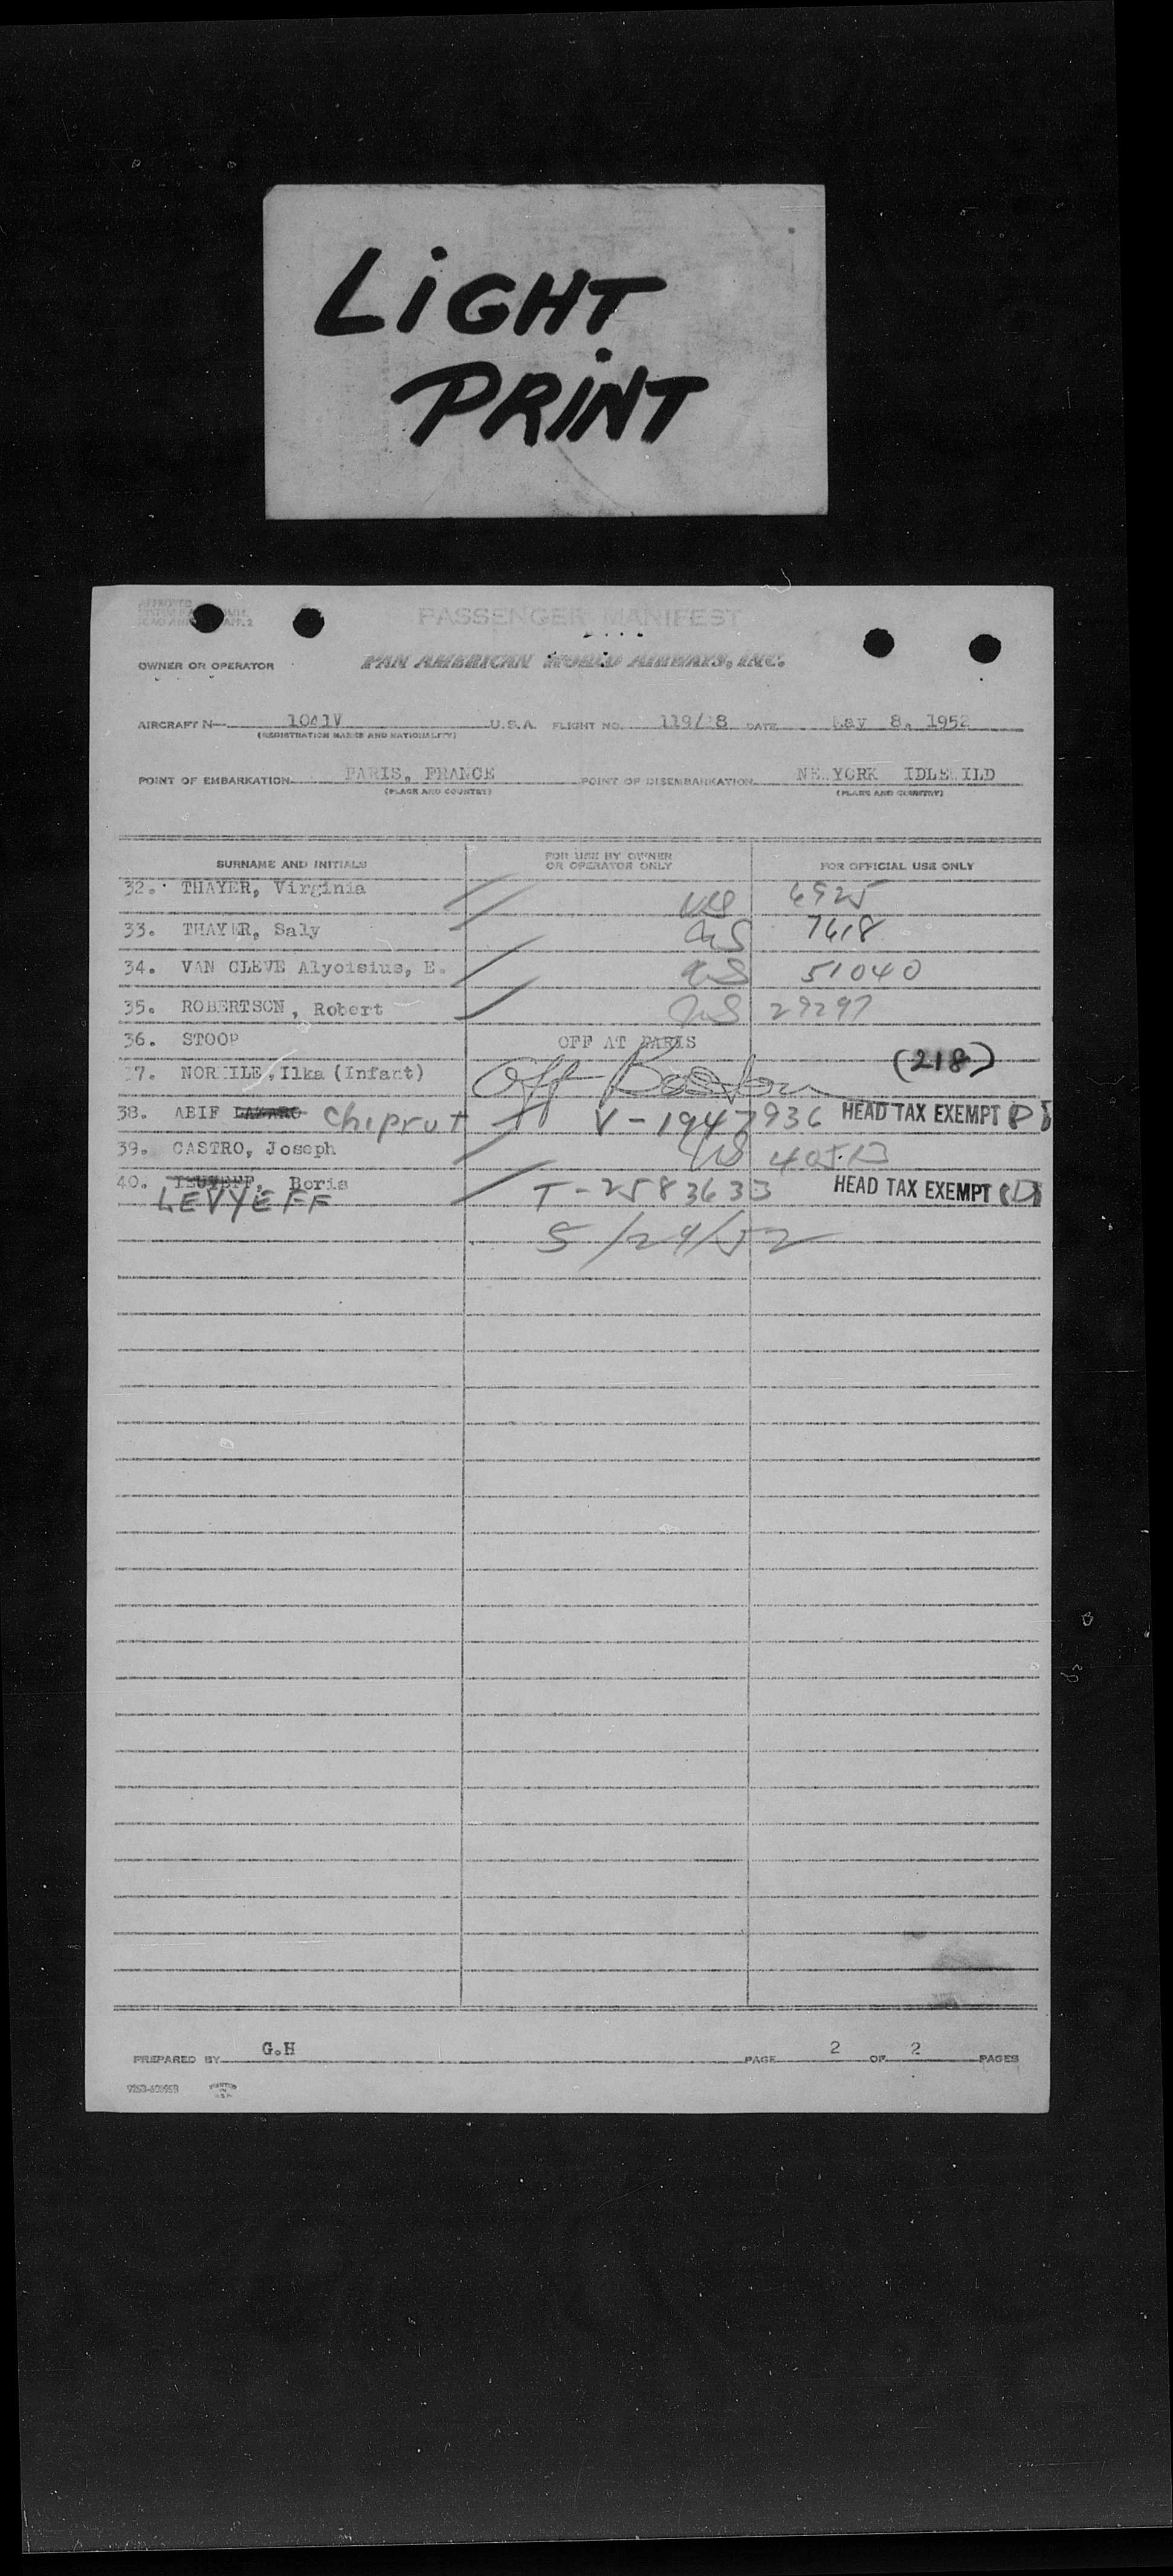 LiGHT
PRiNT
APPROVED
PASSENGER MANIFEST
OWNER OR OPERATOR PAN AMERICAN WORLD AIRWAYS, INC.
AIRCRAFT N— 1041V U.S.A. FLIGHT NO. 119/18 DATE May 8, 1952
(REGISTRATION MARKS AND NATIONALITY)
POINT OF EMBARKATION PARIS, FRANCE POINT OF DISEMBARKATION NE YORK IDLE ILD
(PLACE AND COUNTRY) (PLACE AND COUNTRY)
SURNAME AND INITIALS FOR USE BY OWNER OR OPERATOR ONLY FOR OFFICIAL USE ONLY
32. THAYER, Virginia US 6925
33. THAYER, Saly US 7618
34. VAN CLEVE Alyoisius, E. US 51040
35. ROBERTSON, Robert US 29297
36. STOOP OFF AT PARIS
37. , Ilka (Infant) Off Boston (218)
38. ABIF LAZARO Chiprut V-1947936 HEAD TAX EXEMPT
39. CASTRO, Joseph US
40. Boris T-2583633 HEAD TAX EXEMPT
LEVYEFF
5/29/52
PREPARED BY G.H PAGE 2 OF 2 PAGES
PRINTED IN U.S.A.